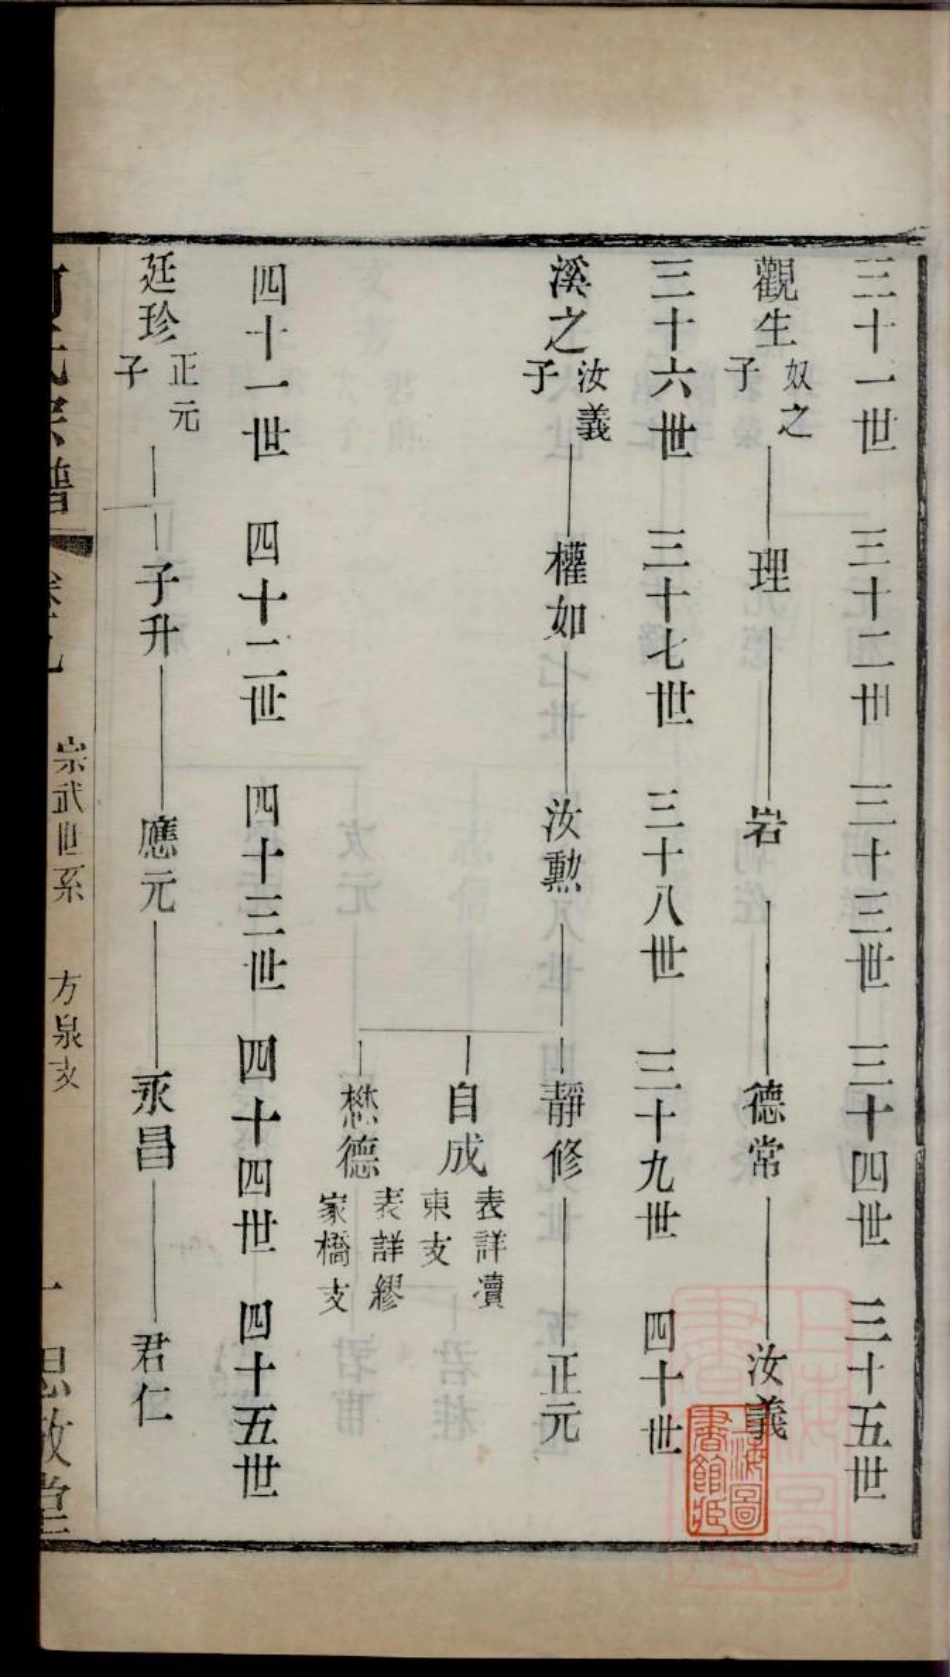 三十一世 三十二世 三十三世 三十四世 三十五世
觀生 奴之子 理 岩 德常 汝義
三十六世 三十七世 三十八世 三十九世 四十世
溪之 汝義子 權如 汝勲 靜修 正元
自成 表詳瀆東支
懋德 表詳繆家橋支
四十一世 四十二世 四十三世 四十四世 四十五世
廷珍 正元子 子升 應元 永昌 君仁
宗武世系 方泉支 一
上海圖書館藏